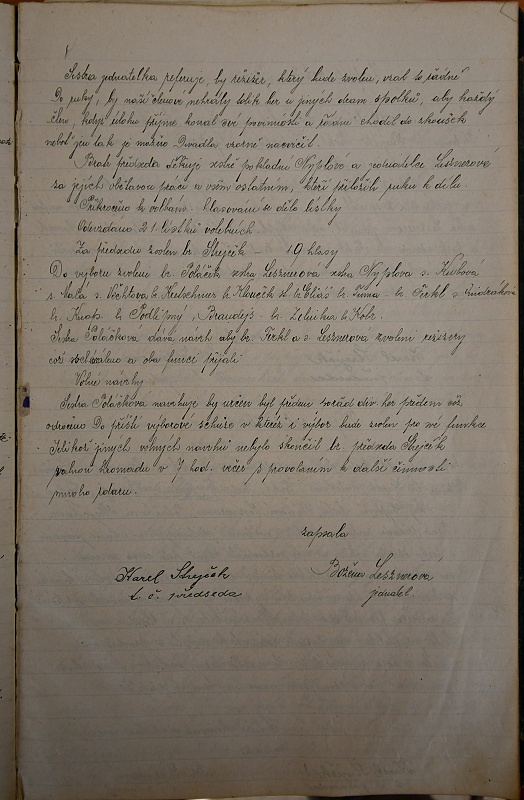 Sestra jednatelka referuje, by režisér, který bude zvolen, vzal to řádně
do ruky, by naši členové nehráli tolik her u jiných dram spolků, aby každý
člen, když úlohu přijme konal své povinnosti a řádně chodil do zkoušek
neboť jen tak je možno divadla vzorně nacvičit.
Bratr předseda děkuje sestře pokladní Nyplové a jednatelce Lesznerové
za jejich obětavou práci a všem ostatním, kteří přiložili ruku k dílu.
Přikročeno k volbám. Hlasování se dělo lístky
Odevzdáno 21 lístků volebních
Za předsedu zvolen br. Strejček – 19 hlasy
Do výboru zvoleni br. Poláček sestra Lesznerová sestra Nyplová s. Kubová
s. Malá s. Vöchtova br. Kretschmer br. Klouček st. br. Eliáš br. Tůma br. Firkl s.
br. Knob. br. Podlipný, Brandejs br. Zelinka br. Kolr.
Sestra Poláčková dává návrh aby br. Firkl a s. Lesznerova zvoleni režiséry
což schváleno a oba funkci přijali
Volné návrhy
Sestra Poláčková navrhuje by určen byl předem pořad div. her předem což
odročeno do příští výborové schůze v kteréž i výbor bude zvolen pro své funkce
Jelikož jiných volných návrhů nebylo skončil br. předseda Strejček
valnou hromadu v 7 hod. večer s provoláním k další činnosti
mnoho zdaru.
zapsala
Karel Strejček Božena Lesznerová
t. č. předseda jednatel.